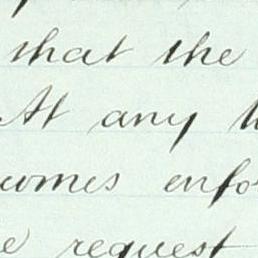 that the
At any
comes enfo
e request